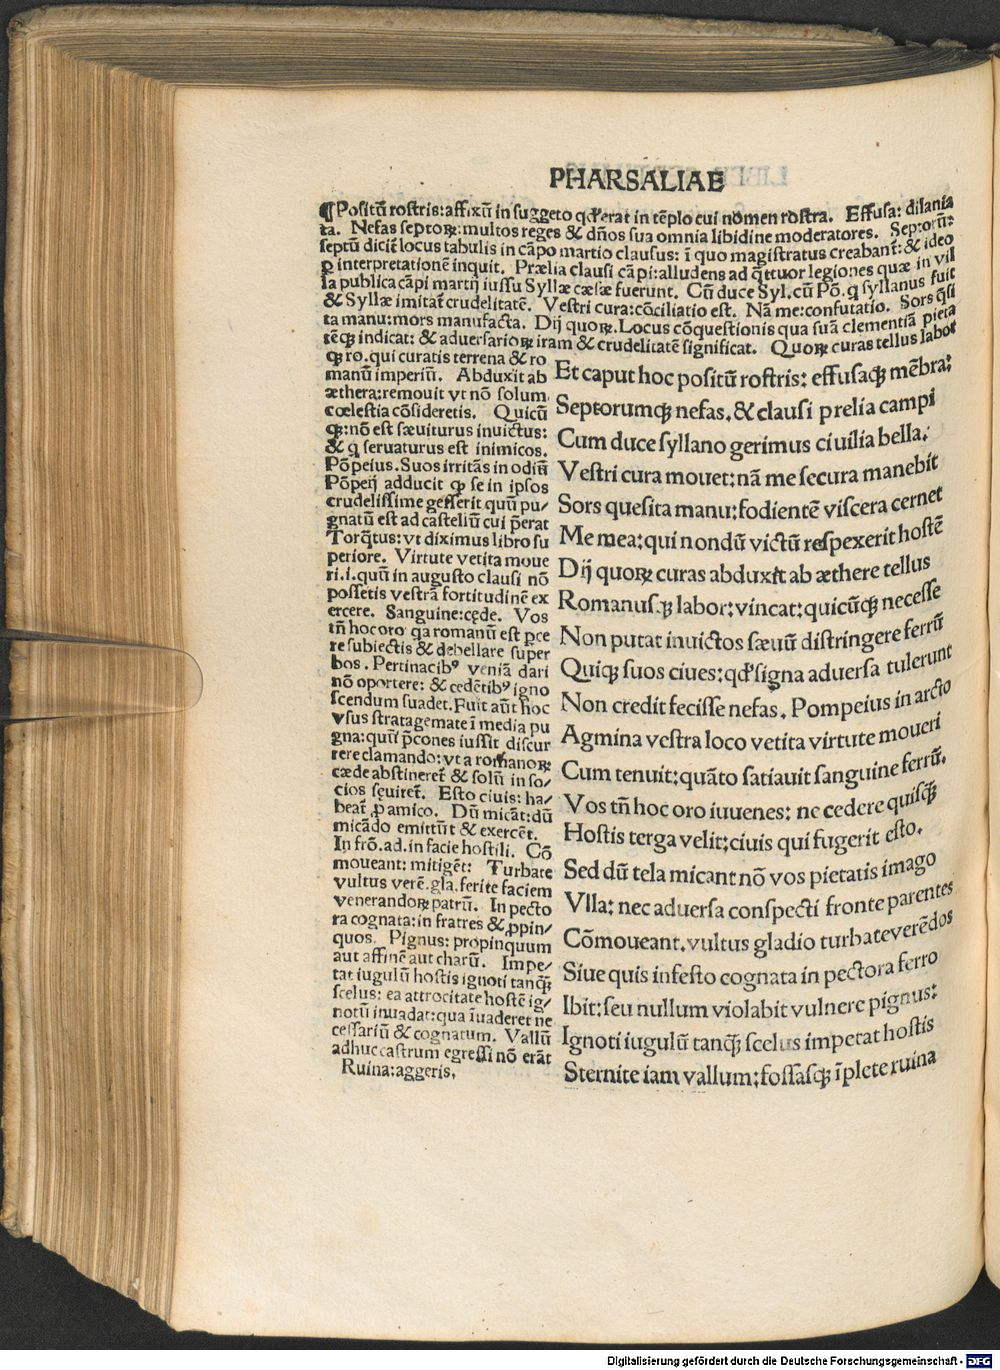 PHARSALIAE
¶Positū rostris:affixū in suggeto qđ erat in tēplo cui nomen rostra. Effusa: dilania
ta. Nefas septoꝝ:multos reges & dños sua omnia libidine moderatores. Septorū:
septū dicit̄ locus tabulis in cāpo martio clausus: ī quo magistratus creabant̄: & ideo
ꝑ interpretationē inquit. Prælia clausi cāpi:alludens ad qͣttuor legiones quæ in vil
la publica cāpi martij iussu Syllæ cæsæ fuerunt. Cū duce Syl.cū Pō.q syllanus fuit
& Syllæ imitat̄ crudelitatē. Vestri cura:cōciliatio est. Nā me:confutatio. Sors qͣsi
ta manu:mors manufacta. Dij quoꝝ.Locus cōquestionis qua suā clementiā pieta
tēqꝫ indicat: & aduersarioꝝ iram & crudelitatē significat. Quoꝝ curas tellus labor
qꝫ ro.qui curatis terrena & ro
manū imperiū. Abduxit ab
æthera:remouit vt nō solum
cœlestia cōsideretis. Quicū
qꝫ:nō est sæuiturus inuictus:
& q seruaturus est inimicos.
Pōpeius.Suos irritās in odiū
Pōpeij adducit qꝫ se in ipsos
crudelissime gesserit quū pu/
gnatū est ad castellū cui p̄erat
Torqͣtus:vt diximus libro su
periore. Virtute vetita moue
ri.i.quū in augusto clausi nō
possetis vestrā fortitudinē ex
ercere. Sanguine:cęde. Vos
tñ hoc oro qa romanū est ꝑce
re subiectis & debellare super
bos. Pertinacibꝰ veniā dari
nō oportere: & cedētibꝰ igno
scendum suadet.Fuit aūt hoc
vsus stratagemate ī media pu
gna:quū p̄cones iussit discur
rere clamando:vt a romanoꝝ
cæde abstineret̄ & solū in so/
cios sęuiret̄. Esto ciuis: ha/
beat̄ ꝓ amico. Dū micāt:dū
micādo emittūt & exercēt.
In frō.ad.in facie hostili. Cō
moueant: mitigēt: Turbate
vultus verē.gla.ferite faciem
venerandoꝝ patrū. In pecto
ra cognata:in fratres & ꝓpin/
quos. Pignus: propinquum
aut affinē aut charū. Impe/
tat iugulū hostis ignoti tanqꝫ
scelus: ea attrocitate hostē ig/
notū inuadat:qua īuaderet ne
cessariū & cognatum. Vallū
adhuc castrum egressi nō erāt
Ruina:aggeris.
Et caput hoc positū rostris: effusaqꝫ mēbra:
Septorumqꝫ nefas.& clausi prelia campi
Cum duce syllano gerimus ciuilia bella.
Vestri cura mouet:nā me secura manebit
Sors quesita manu:fodientē viscera cernet
Me mea:qui nondū victū respexerit hostē
Dij quoꝝ curas abduxit ab æthere tellus
Romanus.qꝫ labor:vincat:quicūqꝫ necesse
Non putat inuictos sæuū distringere ferrū
Quiqꝫ suos ciues:qđ signa aduersa tulerunt
Non credit fecisse nefas. Pompeius in arcto
Agmina vestra loco vetita virtute moueri
Cum tenuit:quāto satiauit sanguine ferrū.
Vos tñ hoc oro iuuenes: ne cedere quisqꝫ
Hostis terga velit:ciuis qui fugerit esto.
Sed dū tela micant nō vos pietatis imago
Vlla: nec aduersa conspecti fronte parentes
Cōmoueant.vultus gladio turbate verēdos
Siue quis infesto cognata in pectora ferro
Ibit:seu nullum violabit vulnere pignus:
Ignoti iugulū tanqꝫ scelus impetat hostis
Sternite iam vallum:fossasqꝫ īplete ruina
Digitalisierung gefördert durch die Deutsche Forschungsgemeinschaft - DFG